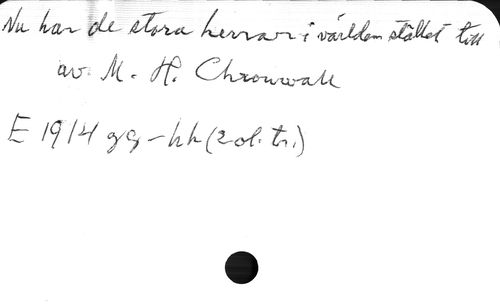 Nu har de stora herrar i världen stället till
av M. H. Chronwall
E 1914 gg-hh (2 ol. tr.)